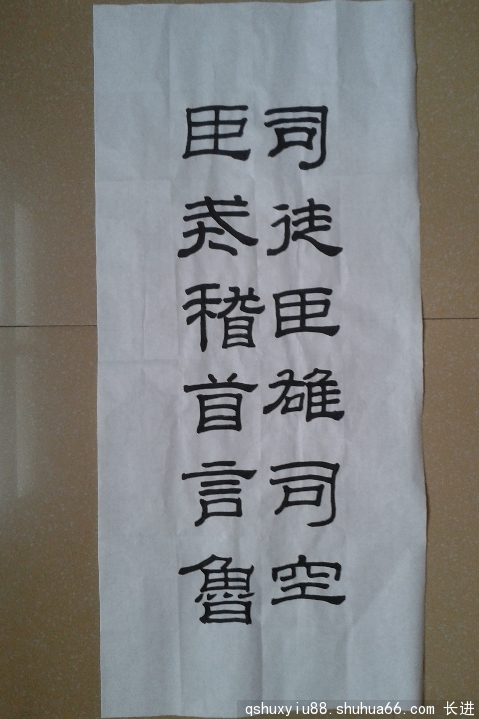 司徒臣雄司空
臣戒稽首言魯
qshuxyiu88.shuhua66.com 长进